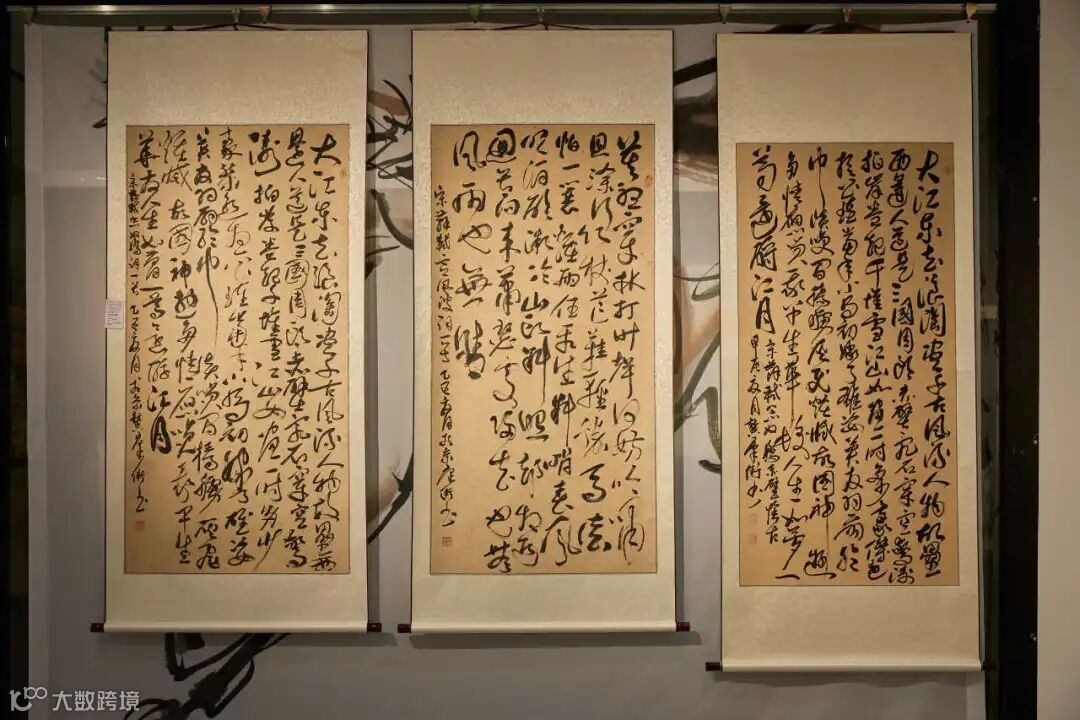 大江东去浪淘尽千古风流人物故垒
西边人道是三国周郎赤壁乱石穿空惊涛
拍岸卷起千堆雪江山如画一时多少豪杰遥
想公瑾当年小乔初嫁了雄姿英发羽扇纶
巾谈笑间樯橹灰飞烟灭故国神游
多情应笑我早生华发人生如梦一
尊还酹江月
宋苏轼念奴娇赤壁怀古
甲辰夏月
莫听穿林打叶声何妨吟啸
且徐行竹杖芒鞋轻胜马谁
怕一蓑烟雨任平生料峭春风
吹酒醒微冷山头斜照却相迎
回首向来萧瑟处归去也无
风雨也无晴
宋苏轼定风波词一首乙巳春月于京
大江东去浪淘尽千古风流人物故垒西
边人道是三國周郎赤壁乱石穿空惊
涛拍岸卷起千堆雪江山如画一时多少
豪杰遥想公瑾当年小乔初嫁了雄姿
英发羽扇纶巾谈笑间樯橹灰飞
烟灭故国神游多情应笑我早生
华发人生如梦一尊还酹江月
宋苏轼念奴娇词一首乙巳春月于京
大数跨境